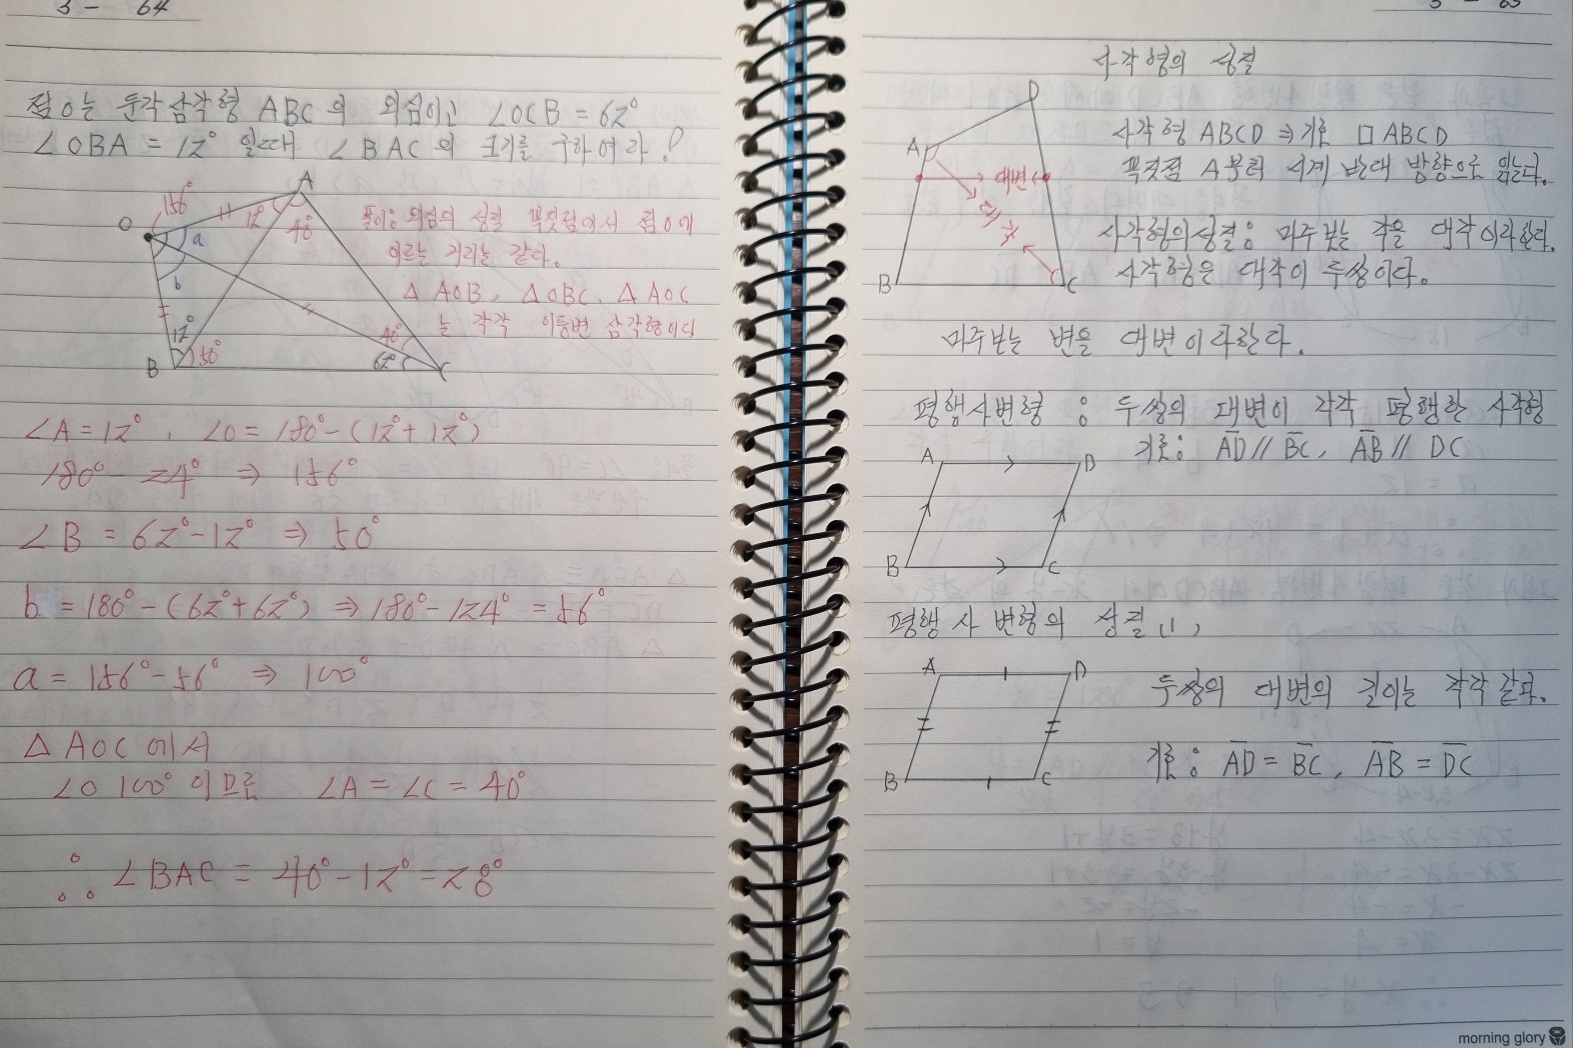 3 - 64
점 O는 둔각삼각형 ABC 의 외심이고 ∠OCB = 62°
∠OBA = 12° 일때 ∠BAC의 크기를 구하여라?
A
O
156°
12°
48°
a
b
12°
50°
B
40°
62°
C
풀이: 외심의 성질 꼭짓점에서 점 O에
이르는 거리는 같다.
△AOB, △OBC, △AOC
는 각각 이등변 삼각형이다
∠A = 12°, ∠O = 180° - (12° + 12°)
180° - 24° ⇒ 156°
∠B = 62° - 12° ⇒ 50°
b = 180° - (62° + 62°) ⇒ 180° - 124° = 56°
a = 156° - 56° ⇒ 100°
△AOC에서
∠O 100° 이므로 ∠A = ∠C = 40°
∴ ∠BAC = 40° - 12° = 28°
3 - 65
사각형의 성질
D
A
B
C
대변
대각
사각형 ABCD ⇒ 기호 □ABCD
꼭짓점 A부터 시계 반대 방향으로 읽는다.
사각형의성질: 마주보는 각을 대각이라한다.
사각형은 대각이 두쌍이다.
마주보는 변을 대변이라한다.
평행사변형 : 두쌍의 대변이 각각 평행한 사각형
기호: AD // BC, AB // DC
A
D
B
C
평행사변형의 성질(1)
A
D
B
C
두쌍의 대변의 길이는 각각같다.
기호: AD = BC, AB = DC
morning glory